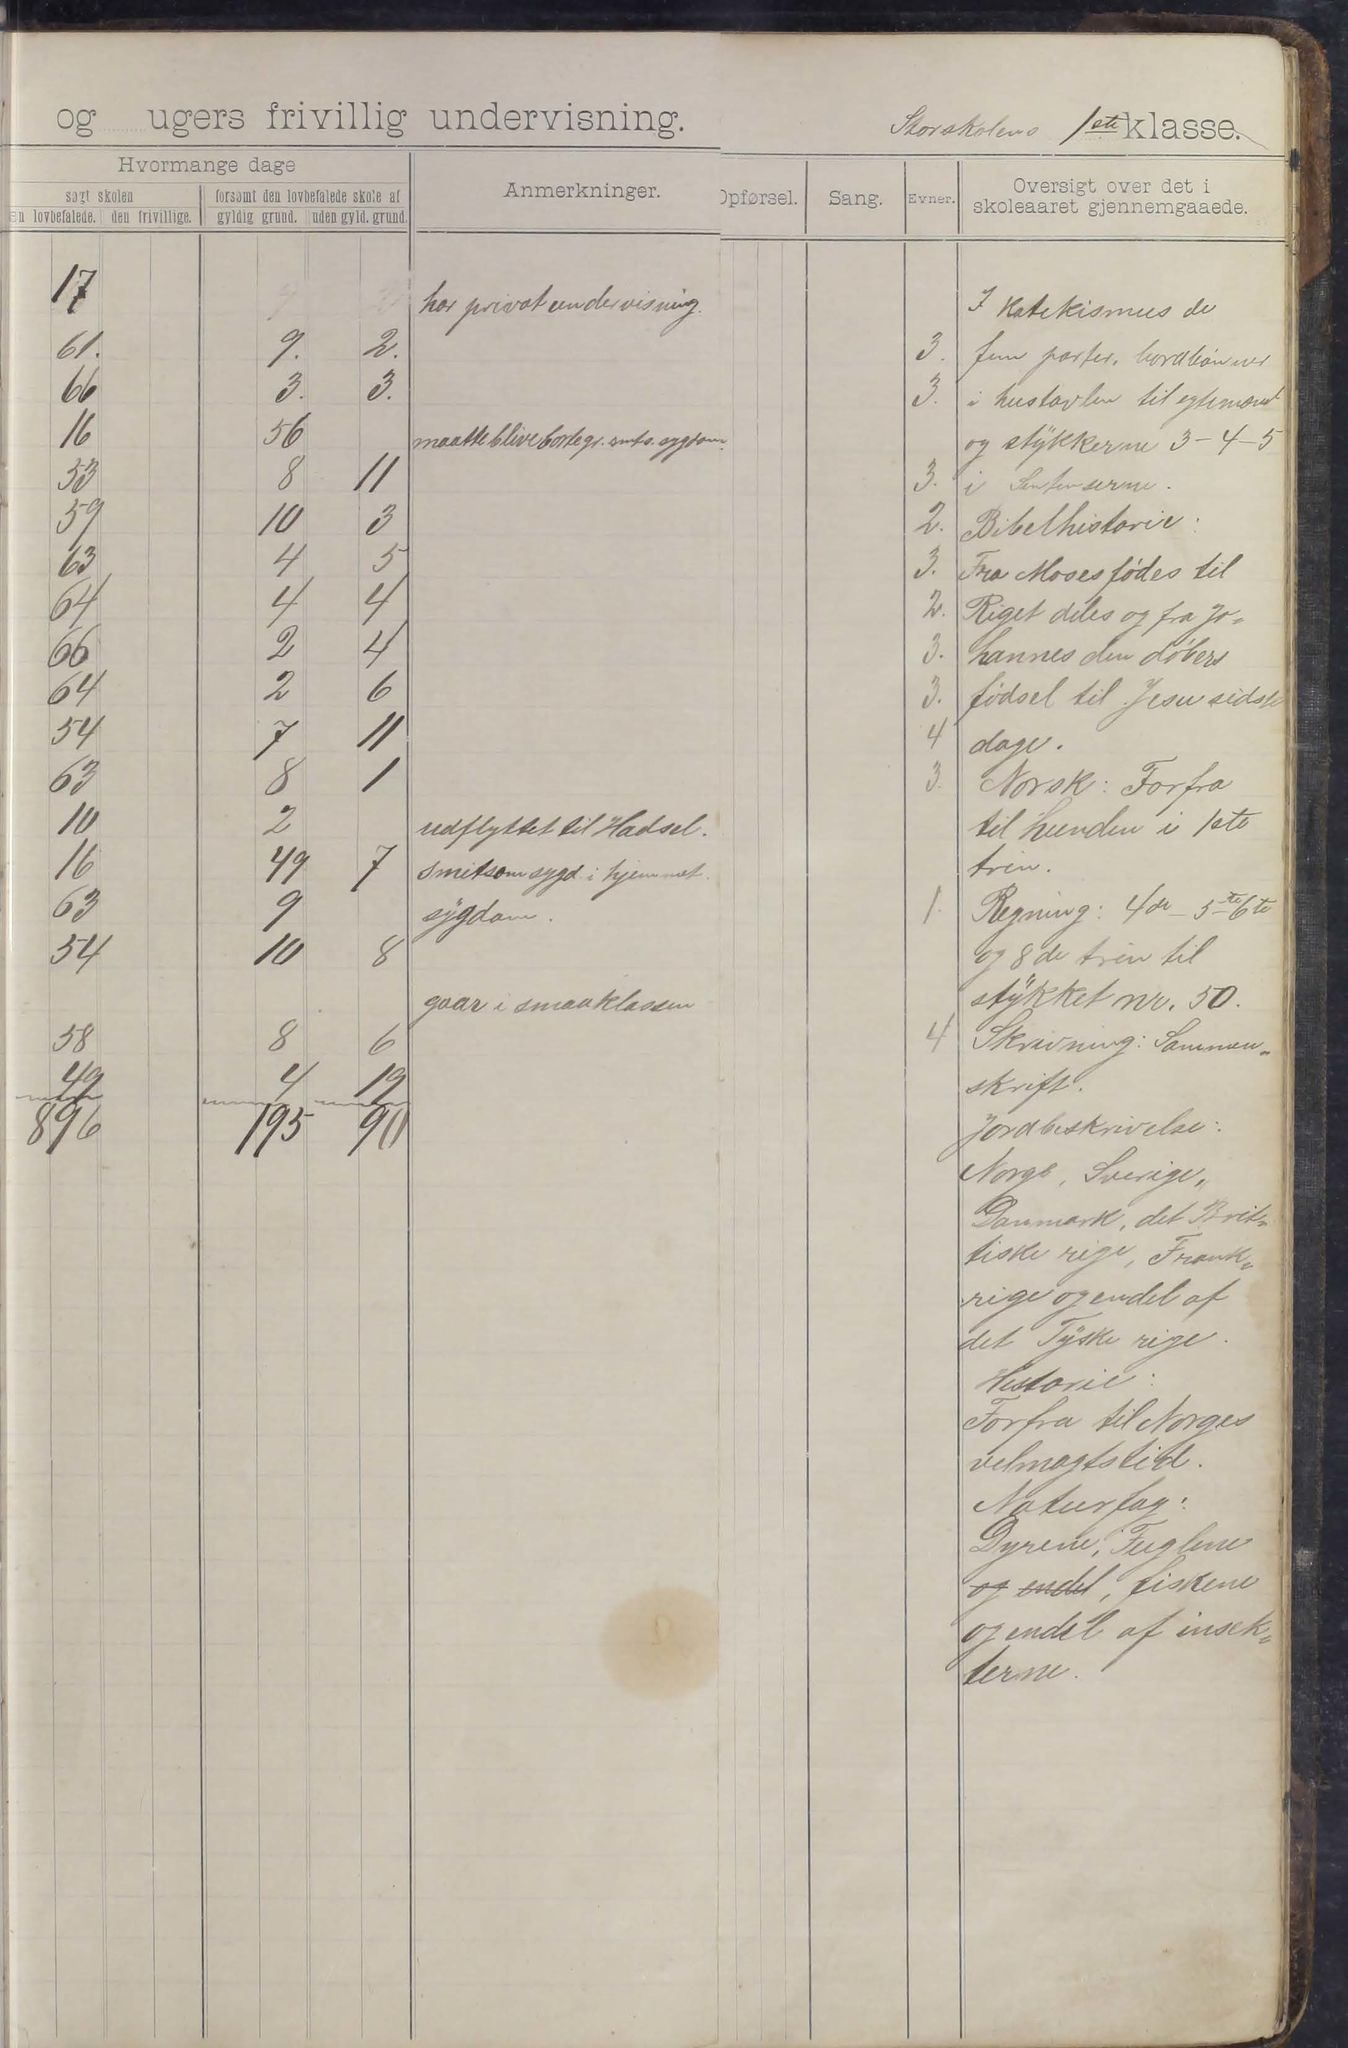 og ugers frivillig undervisning.
Storskolens 1ste klasse.
Hvormange dage
søgt skolen
forsømt den lovbefalede skole af
en lovbefalede. den frivillige. gyldig grund. uden gyld. grund.
Anmerkninger.
Opførsel. Sang. Evner.
Oversigt over det i
skoleaaret gjennemgaaede.
17 har privat undervisning.
61. 9. 2. 3.
66 3. 3. 3.
16 56 maatte blive borte gr. smits. sygdom.
53 8 11 3.
59 10 3 2.
63 4 5 3.
64 4 4 2.
66 2 4 3.
64 2 6 3.
54 7 11 4
63 8 1 3.
10 2 udflyttet til Hadsel.
16 49 7 smitsom sygd. i hjemmet.
63 9 sygdom. 1.
54 10 8
gaar i smaaklassen
58 8 6 4
49 4 19
896 195 90
I katekismus de
fem parter, bordbønner
i hustavlen til egtemænd
og stykkerne 3-4-5
i Sentenserne.
Bibelhistorie:
Fra Moses fødes til
Riget deles og fra Jo-
hannes den døbers
fødsel til Jesu sidste
dage.
Norsk: Forfra
til hunden i 1ste
trin.
Regning: 4de - 5te 6te
og 8de trin til
stykket nr. 50.
Skrivning: Sammen-
skrift.
Jordbeskrivelse:
Norge, Sverige,
Danmark, det Brit-
tiske rige, Frank-
rige og endel af
det Tyske rige.
Historie:
Forfra til Norges
velmagtstid.
Naturfag:
Dyrene, Fuglene
og endel, fiskene
og endel af insek-
terne.